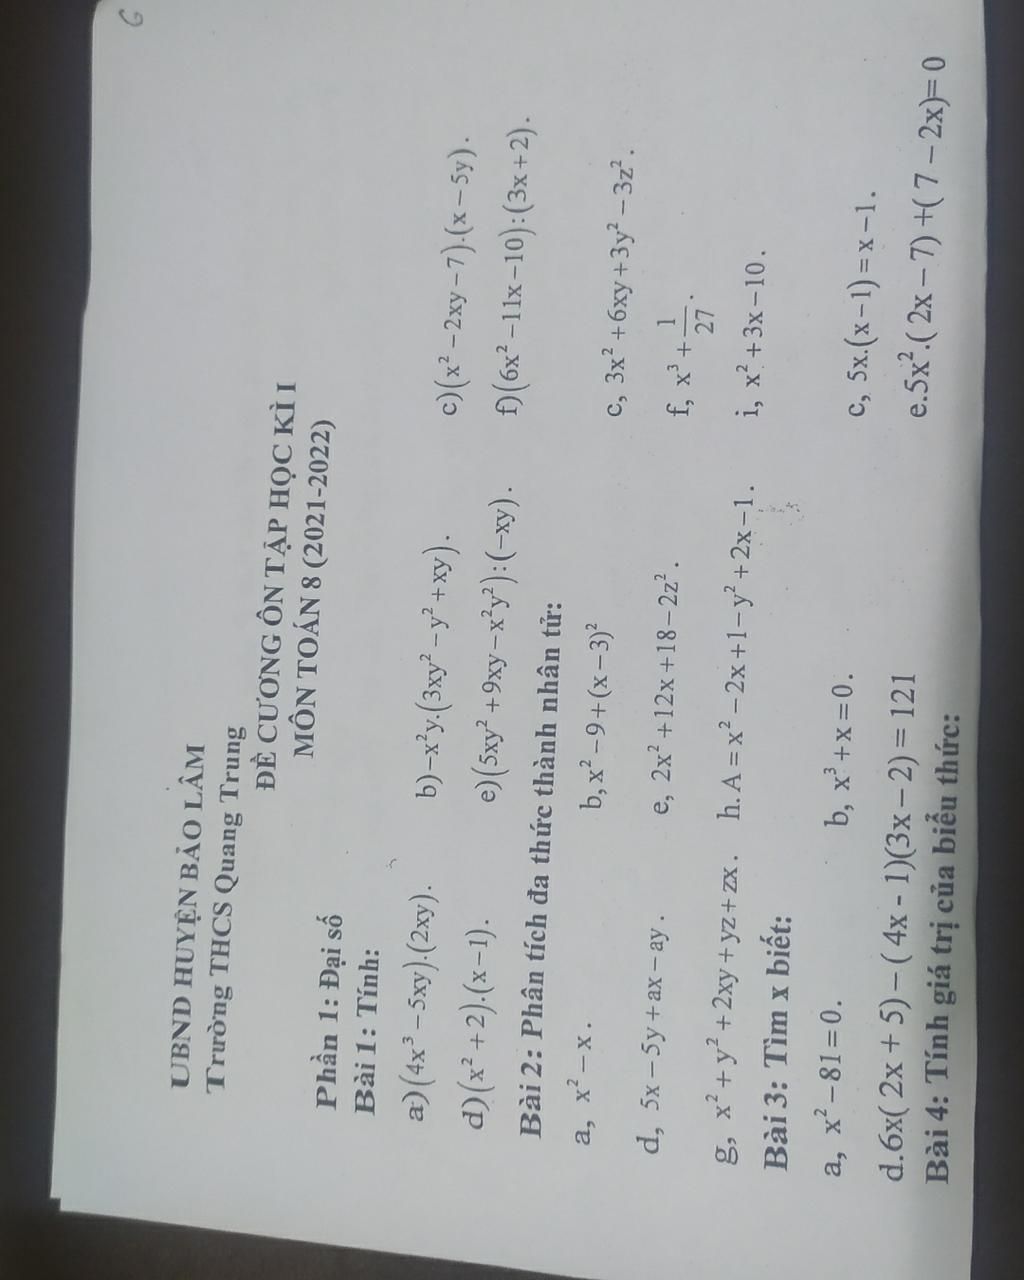 6
UBND HUYỆN BẢO LÂM
Trường THCS Quang Trung
ĐỀ CƯƠNG ÔN TẬP HỌC KÌ I
MÔN TOÁN 8 (2021-2022)
Phần 1: Đại số
Bài 1: Tính:
a) (4x³ – 5xy).(2xy). b) –x²y.(3xy² – y² + xy). c) (x² – 2xy – 7).(x – 5y).
d) (x² + 2).(x – 1). e) (5xy² + 9xy – x²y²):(–xy). f) (6x² – 11x – 10):(3x + 2).
Bài 2: Phân tích đa thức thành nhân tử:
a, x² – x. b, x² – 9 + (x – 3)² c, 3x² + 6xy + 3y² – 3z².
d, 5x – 5y + ax – ay. e, 2x² + 12x + 18 – 2z². f, x³ + 1/27.
g, x² + y² + 2xy + yz + zx. h. A = x² – 2x + 1 – y² + 2x – 1. i, x² + 3x – 10.
Bài 3: Tìm x biết:
a, x² – 81 = 0. b, x³ + x = 0. c, 5x.(x – 1) = x – 1.
d. 6x( 2x + 5) – ( 4x - 1)(3x – 2) = 121 e. 5x².( 2x – 7) + ( 7 – 2x) = 0
Bài 4: Tính giá trị của biểu thức: